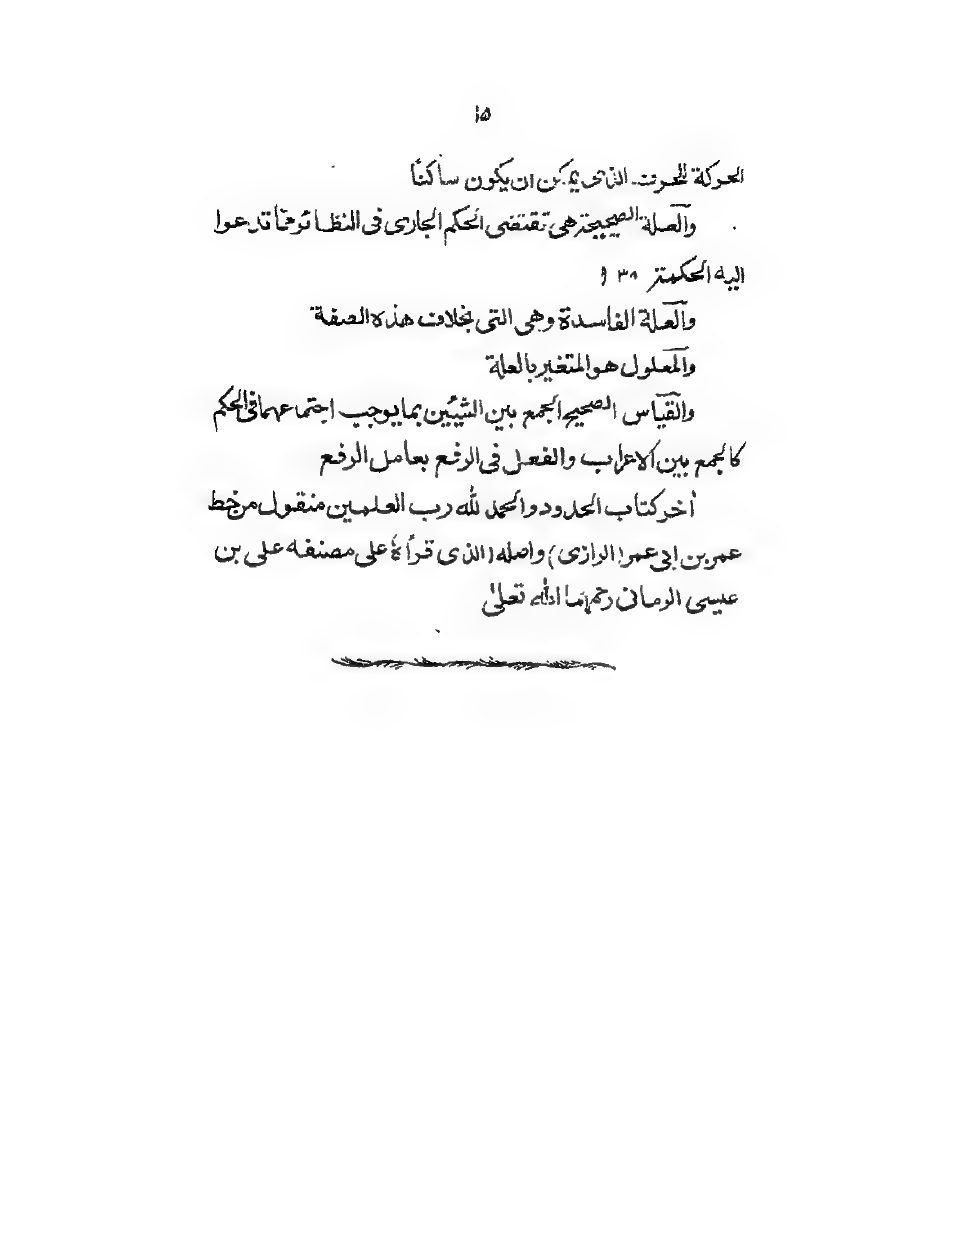 ١٥
الحركة للحرف الذى يمكن ان يكون ساكنا
والعلة الصحيحة هى تقتضى الحكم الجارى فى النظائر مما تدعوا
اليه الحكمة ٣٩ و
والعلة الفاسدة وهى التى بخلاف هذه الصفة
والمعلول هو المتغير بالعلة
والقياس الصحيح الجمع بين الشيئين بما يوجب اجتماعهما فى الحكم
كالجمع بين الاعراب والفعل فى الرفع بعامل الرفع
أخر كتاب الحدود والحمد لله رب العلمين منقول من خط
عمر بن ابى عمر (الرازى) واصله (الذى قرأه على مصنفه على بن
عيسى الرمانى رحمهما الله تعلى